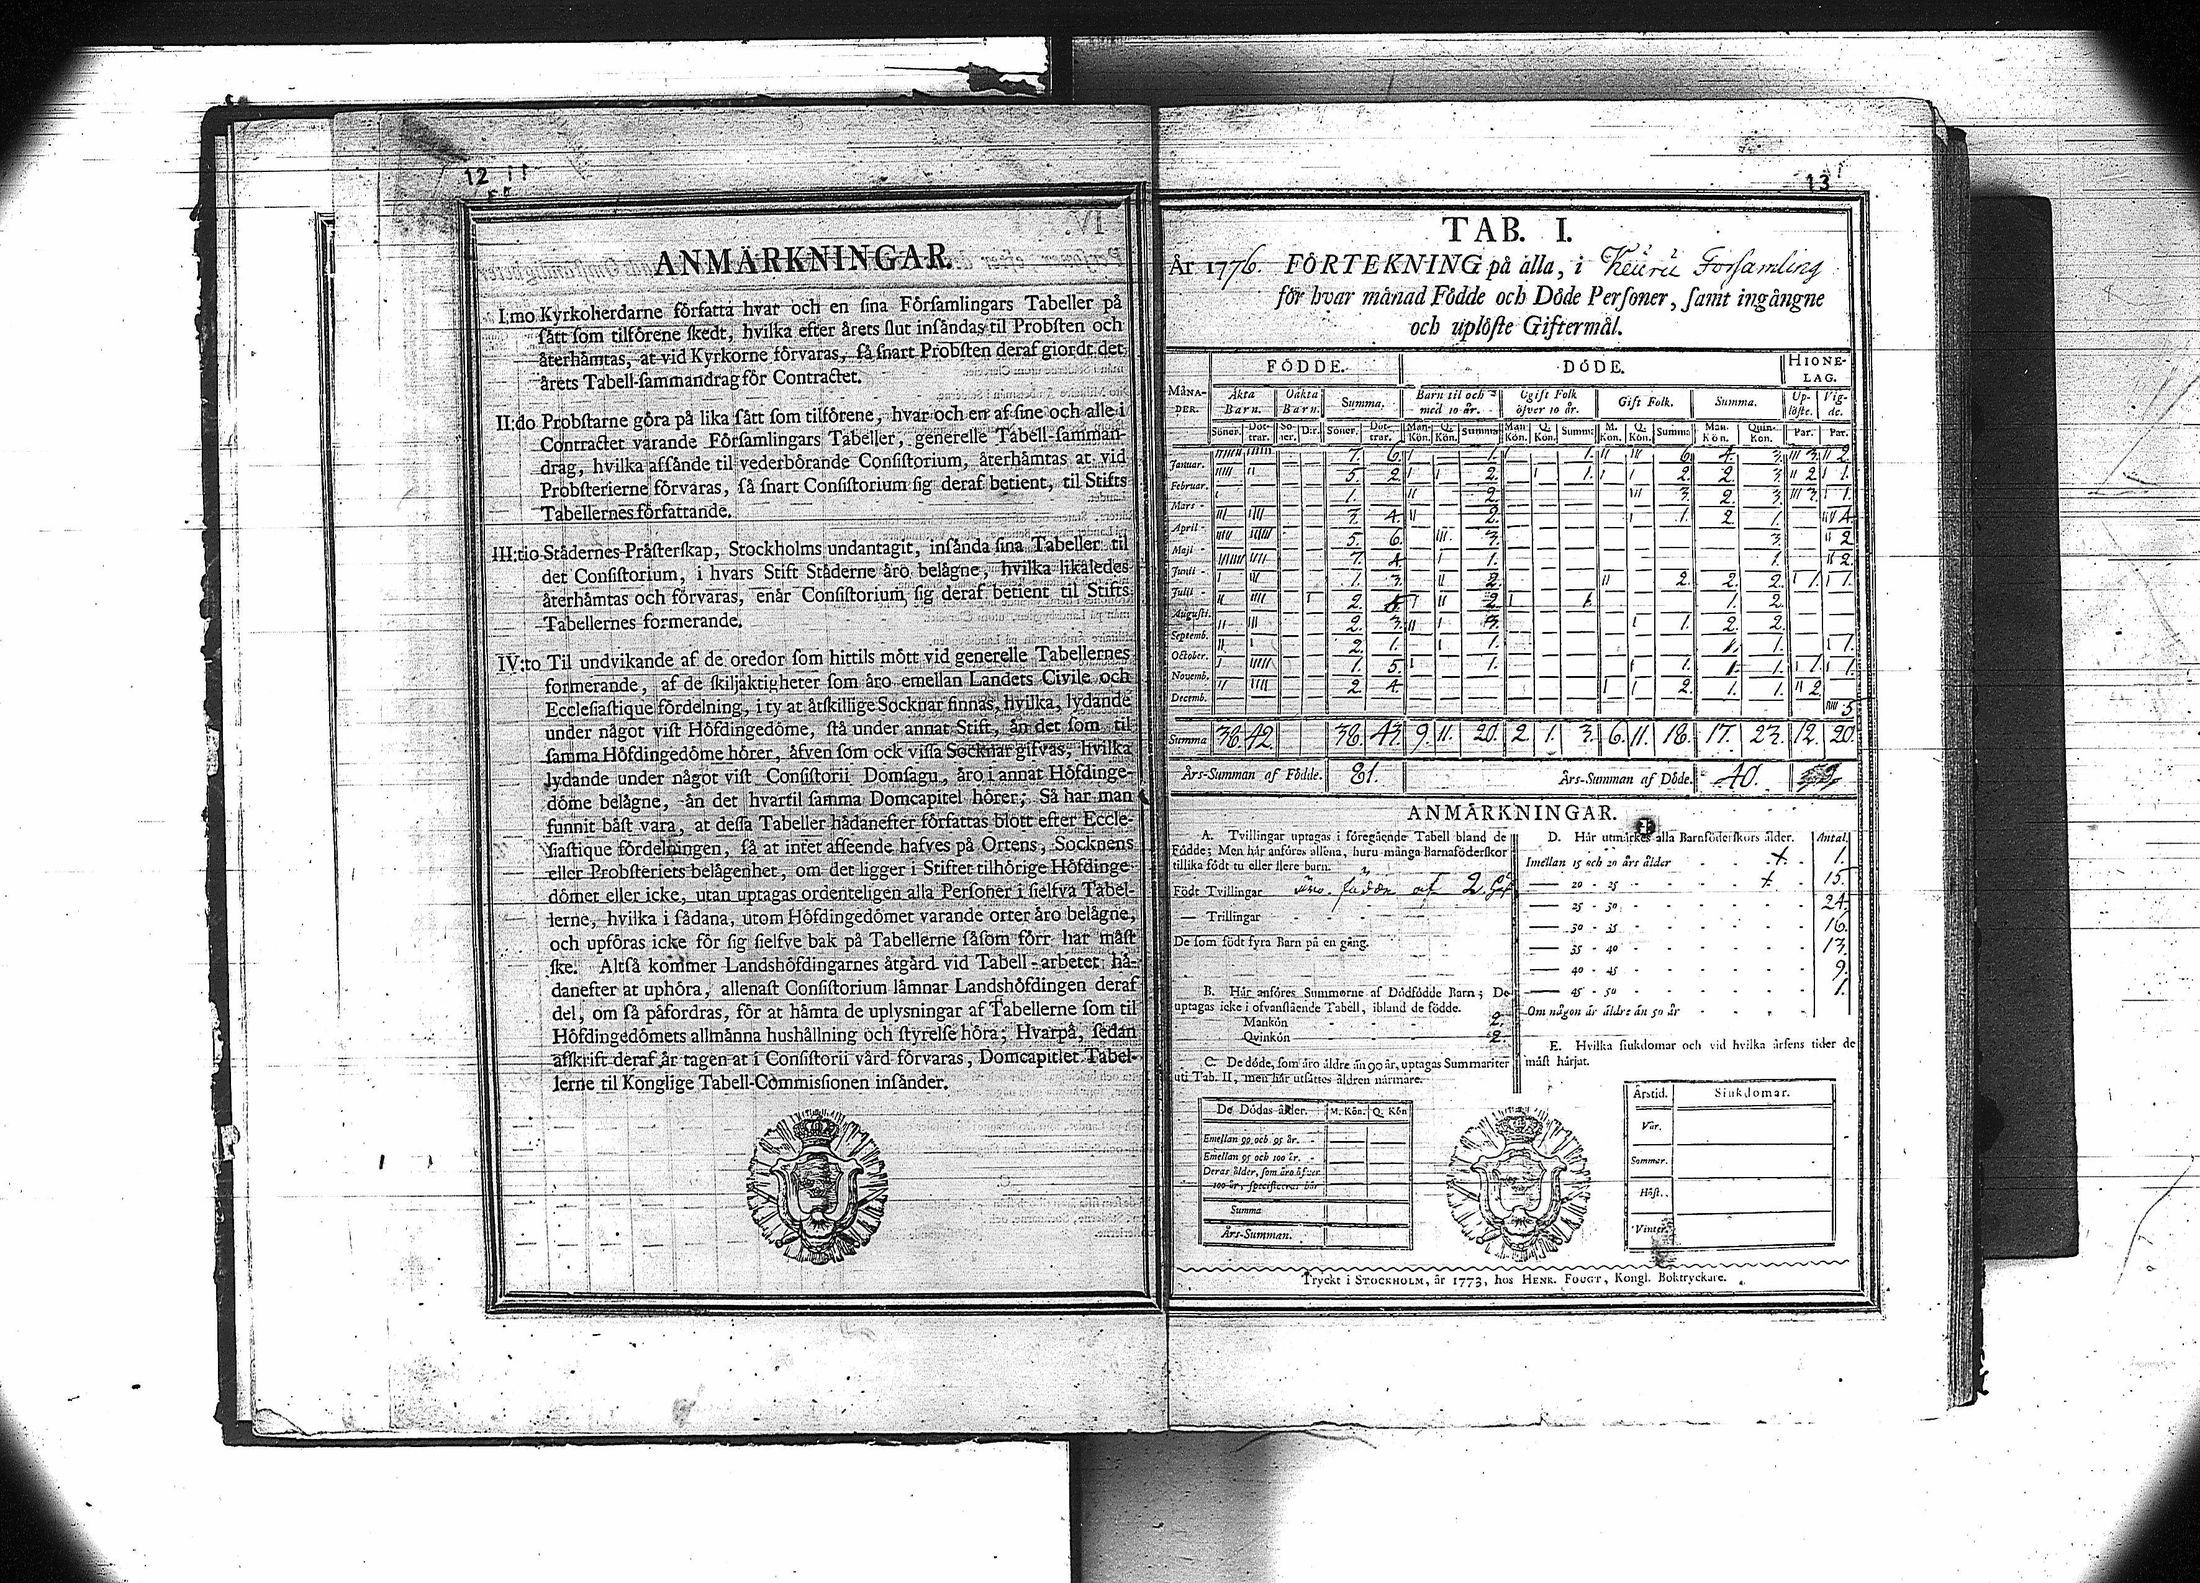 12 11
ANMÄRKNINGAR.
I:mo Kyrkoherdarne författa hvar och en sina Församlingars Tabeller på
sätt som tilförene skedt, hvilka efter årets slut insändas til Probsten och
återhämtas, at vid Kyrkorne förvaras, så snart Probsten deraf giordt det
årets Tabell-sammandrag för Contractet.
II:do Probstarne göra på lika sätt som tilförene, hvar och en af sine och alle i
Contractet varande Församlingars Tabeller, generelle Tabell-samman-
drag, hvilka afsände til vederbörande Consistorium, återhämtas at vid
Probsterierne förvaras, så snart Consistorium sig deraf betient, til Stifts
Tabellernes författande.
III:tio Städernes Prästerskap, Stockholms undantagit, insända sina Tabeller til
det Consistorium, i hvars Stift Städerne äro belägne, hvilka likaledes
återhämtas och förvaras, enär Consistorium sig deraf betient til Stifts
Tabellernes formerande.
IV:to Til undvikande af de oredor som hittils mött vid generelle Tabellernes
formerande, af de skiljaktigheter som äro emellan Landets Civile och
Ecclesiastique fördelning, i ty at åtskillige Socknar finnas, hvilka, lydande
under något vist Höfdingedöme, stå under annat Stift, än det som til
samma Höfdingedöme hörer, äfven som ock vissa Socknar gifvas, hvilka
lydande under något vist Consistorii Domsagu, äro i annat Höfdinge-
döme belägne, än det hvartil samma Domcapitel hörer; Så har man
funnit bäst vara, at dessa Tabeller hädanefter författas blott efter Eccle-
siastique fördelningen, så at intet afseende hafves på Ortens, Socknens
eller Probsteriets belägenhet, om det ligger i Stiftet tilhörige Höfdinge-
dömet eller icke, utan uptagas ordenteligen alla Personer i sielfva Tabel-
lerne, hvilka i sådana, utom Höfdingedömet varande orter äro belägne,
och upföras icke för sig sielfve bak på Tabellerne såsom förr har mäst
ske. Altså kommer Landshöfdingarnes åtgärd vid Tabell-arbetet hä-
danefter at uphöra, allenast Consistorium lämnar Landshöfdingen deraf
del, om så påfordras, för at hämta de uplysningar af Tabellerne som til
Höfdingedömets allmänna hushållning och styrelse höra; Hvarpå, sedan
afskrift deraf är tagen at i Consistorii vård förvaras, Domcapitlet Tabel-
lerne til Konglige Tabell-Commissionen insänder.
13
TAB. I.
År 1776. FÖRTEKNING på alla, i Keuru Församling
för hvar månad Födde och Döde Personer, samt ingångne
och uplöste Giftermål.
MÅNA-DER. FÖDDE. DÖDE. HIONE-LAG.
Äkta Barn. Oäkta Barn. Summa. Barn til och med 10 år. Ogift Folk öfver 10 år. Gift Folk. Summa. Up-löste. Vig-de.
Söner. Döt-trar. Sö-ner. D:r. Söner. Döt-trar. Man-Kön. Q. Kön. Summa Man Kön. Q. Kön. Summa M. Kön. Q. Kön. Summa Man. Kön. Quin-Kön. Par. Par.
Januar. 7. 6. 1. 1. 6. 4. 3. 3. 2.
Februar. 5. 2. 2. 1. 2. 2. 3. 2 1.
Mars 1. 2. 3. 2. 3. 3. 1.
April 3. 4. 2. 1. 2. 1. 4.
Maji 5. 6. 3. 3. 2
Junii 7. 4. 1. 1. 2.
Julii 1. 3. 2. 2. 2. 2. 1. 1.
Augusti. 2. 5. 2. 1. 1. 2.
Septemb. 2. 3. 3. 1. 2. 2.
October. 2. 1. 1. 1. 1. 1.
Novemb. 1. 5. 1. 1. 1. 1. 1. 1.
Decemb. 2. 4. 2. 1. 1. 2. 5
Summa 38. 42. 38. 43. 9. 11. 20. 2. 1. 3. 6. 11. 18. 17. 23. 12. 20.
Års-Summan af Födde. 81. Års-Summan af Döde. 40.
ANMÄRKNINGAR.
A. Tvillingar uptagas i föregående Tabell bland de
Födde; Men här anföres allena, huru många Barnaföderskor
tillika födt tu eller flere barn.
Födt Tvillingar
— Trillingar
De som födt fyra Barn på en gång.
B. Här anföres Summorne af Dödfödde Barn; De
uptagas icke i ofvanstående Tabell, ibland de födde.
Mankön 2.
Qvinkön 2.
C. De döde, som äro äldre än 90 år, uptagas Summariter
uti Tab. II, men här utsättes åldren närmare.
De Dödas ålder. M. Kön. Q. Kön
Emellan 90 och 95 år.
Emellan 95 och 100 år.
Deras ålder, som äro öfver
100 år, specificeras här
Summa
Års-Summan.
D. Här utmärkes alla Barnföderskors ålder. Antal.
Imellan 15 och 20 års ålder 1.
— 20 - 25 15.
— 25 - 30 24.
— 30 - 35 16.
— 35 - 40 13.
— 40 - 45 9.
— 45 - 50 1.
Om någon är äldre än 50 år
E. Hvilka siukdomar och vid hvilka årsens tider de
mäst härjat.
Årstid. Siukdomar.
Vår.
Sommar.
Höst.
Vinter.
Tryckt i STOCKHOLM, år 1773, hos HENR. FOUGT, Kongl. Boktryckare.